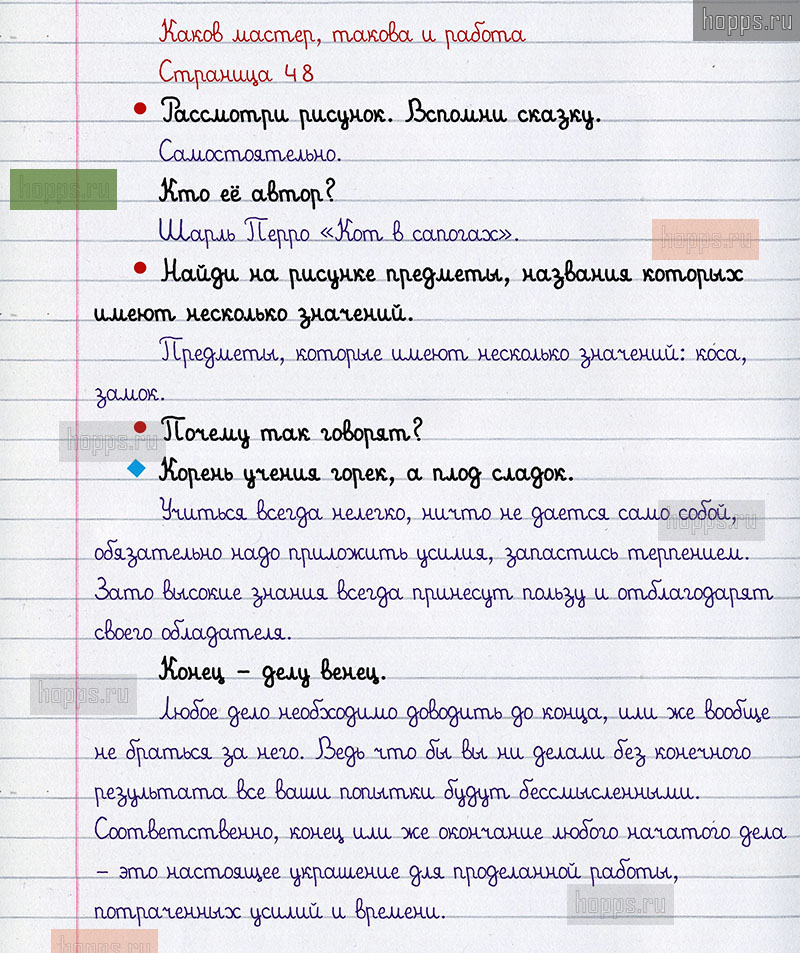 hopps.ru
Каков мастер, такова и работа
Страница 48
Рассмотри рисунок. Вспомни сказку.
Самостоятельно.
hopps.ru
Кто её автор?
Шарль Перро «Кот в сапогах».
hopps.ru
Найди на рисунке предметы, названия которых
имеют несколько значений.
Предметы, которые имеют несколько значений: коса,
замок.
hopps.ru
Почему так говорят?
Корень учения горек, а плод сладок.
Учиться всегда нелегко, ничто не дается само собой,
hopps.ru
обязательно надо приложить усилия, запастись терпением.
Зато высокие знания всегда принесут пользу и отблагодарят
своего обладателя.
Конец – делу венец.
hopps.ru
Любое дело необходимо доводить до конца, или же вообще
не браться за него. Ведь что бы вы ни делали без конечного
результата все ваши попытки будут бессмысленными.
Соответственно, конец или же окончание любого начатого дела
– это настоящее украшение для проделанной работы,
hopps.ru
потраченных усилий и времени.
hopps.ru